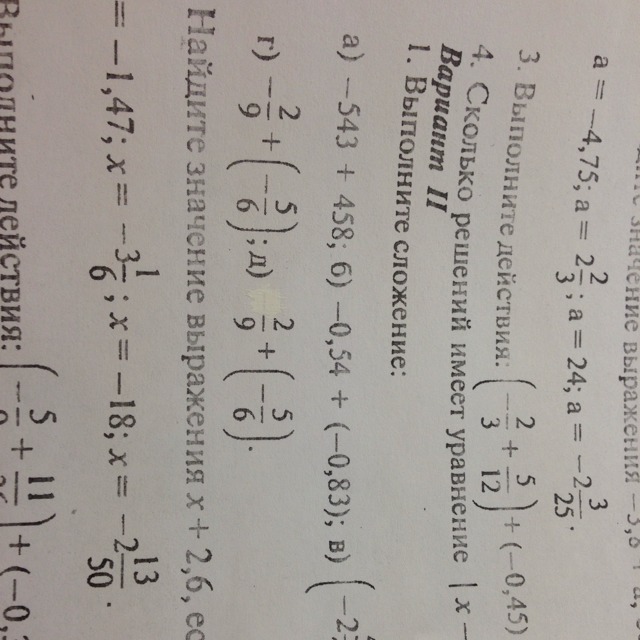 значение выражения −3,8 +
a = −4,75; a = 2 2/3; a = 24; a = −2 3/25.
3. Выполните действия: (−2/3 + 5/12) + (−0,45)
4. Сколько решений имеет уравнение | x −
Вариант II
1. Выполните сложение:
а) −543 + 458; б) −0,54 + (−0,83); в) (−2
г) −2/9 + (−5/6); д) 2/9 + (−5/6).
Найдите значение выражения x + 2,6, ес
= −1,47; x = −3 1/6; x = −18; x = −2 13/50.
Выполните действия: (−5/ + 11/) + (−0,